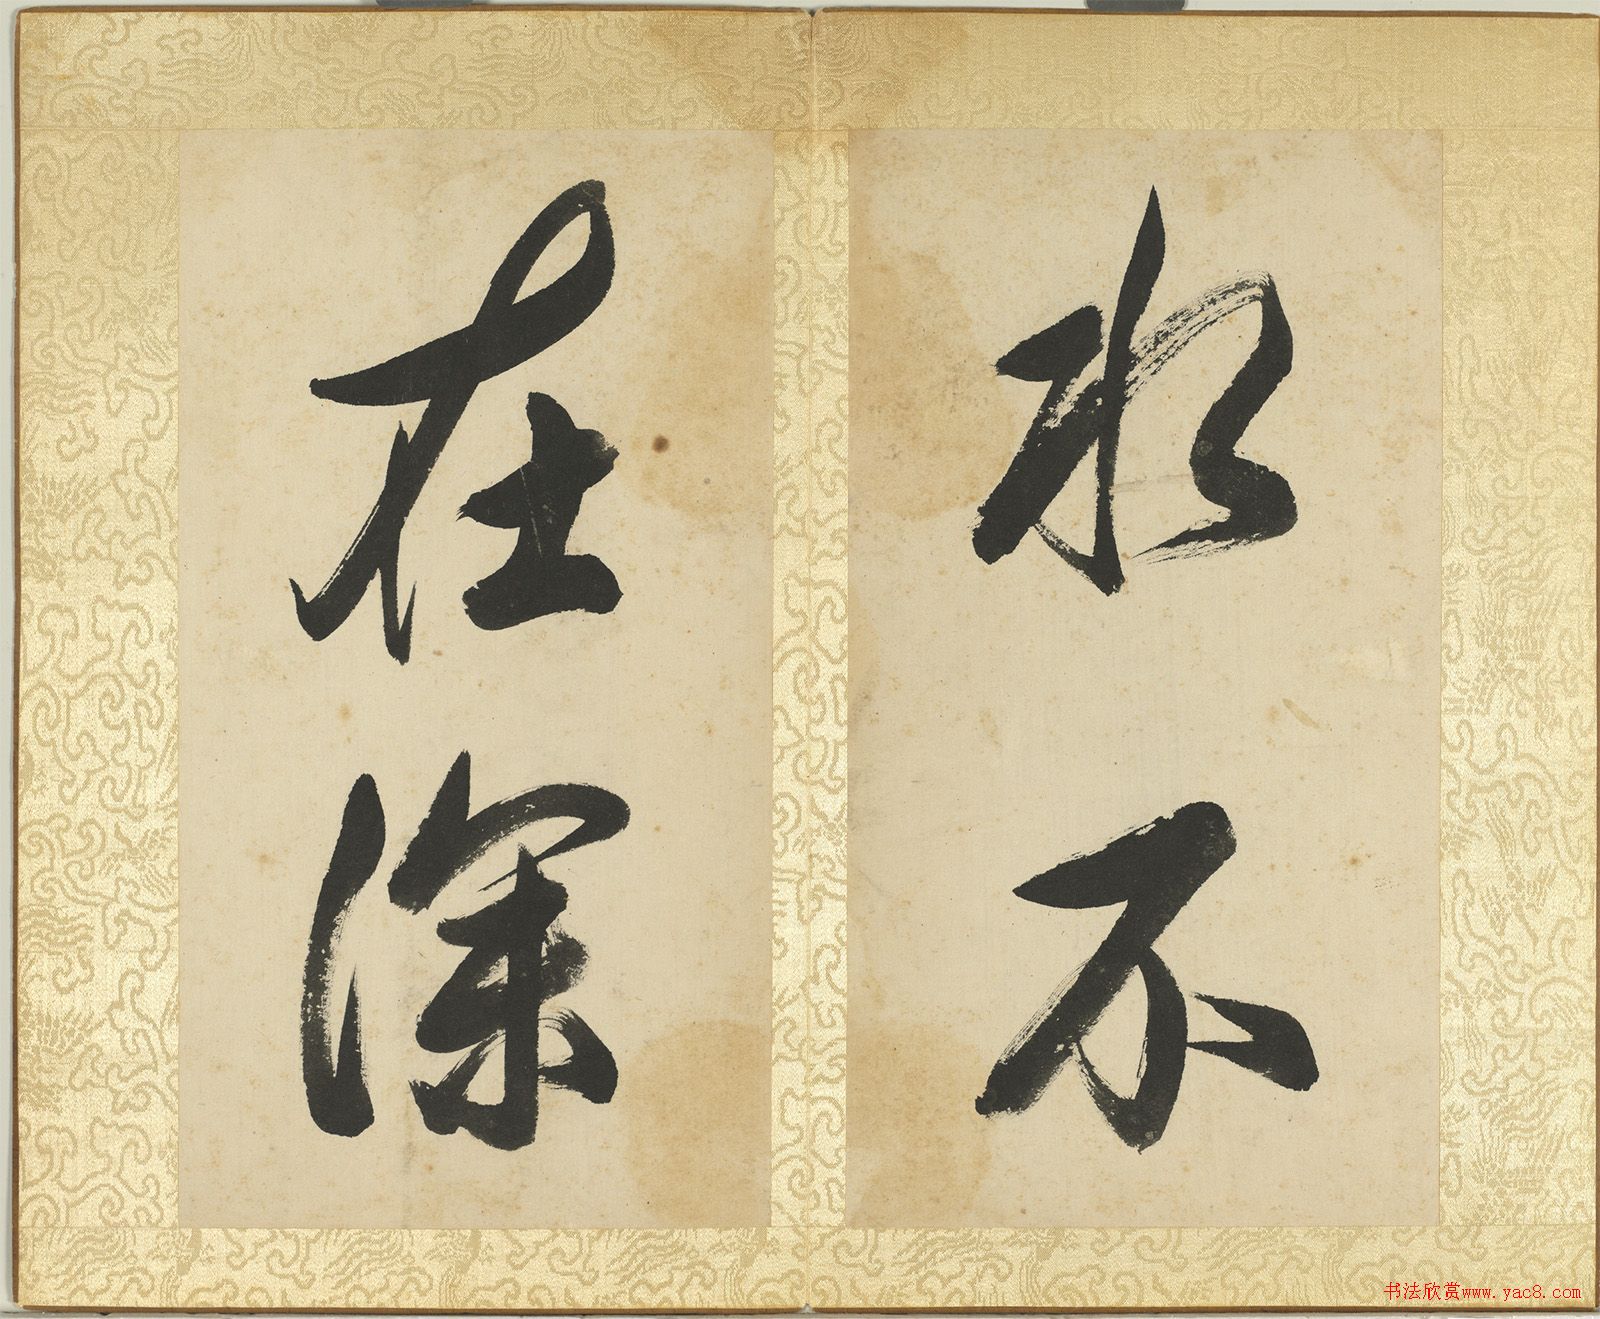 水不
在深
书法欣赏www.yac8.com